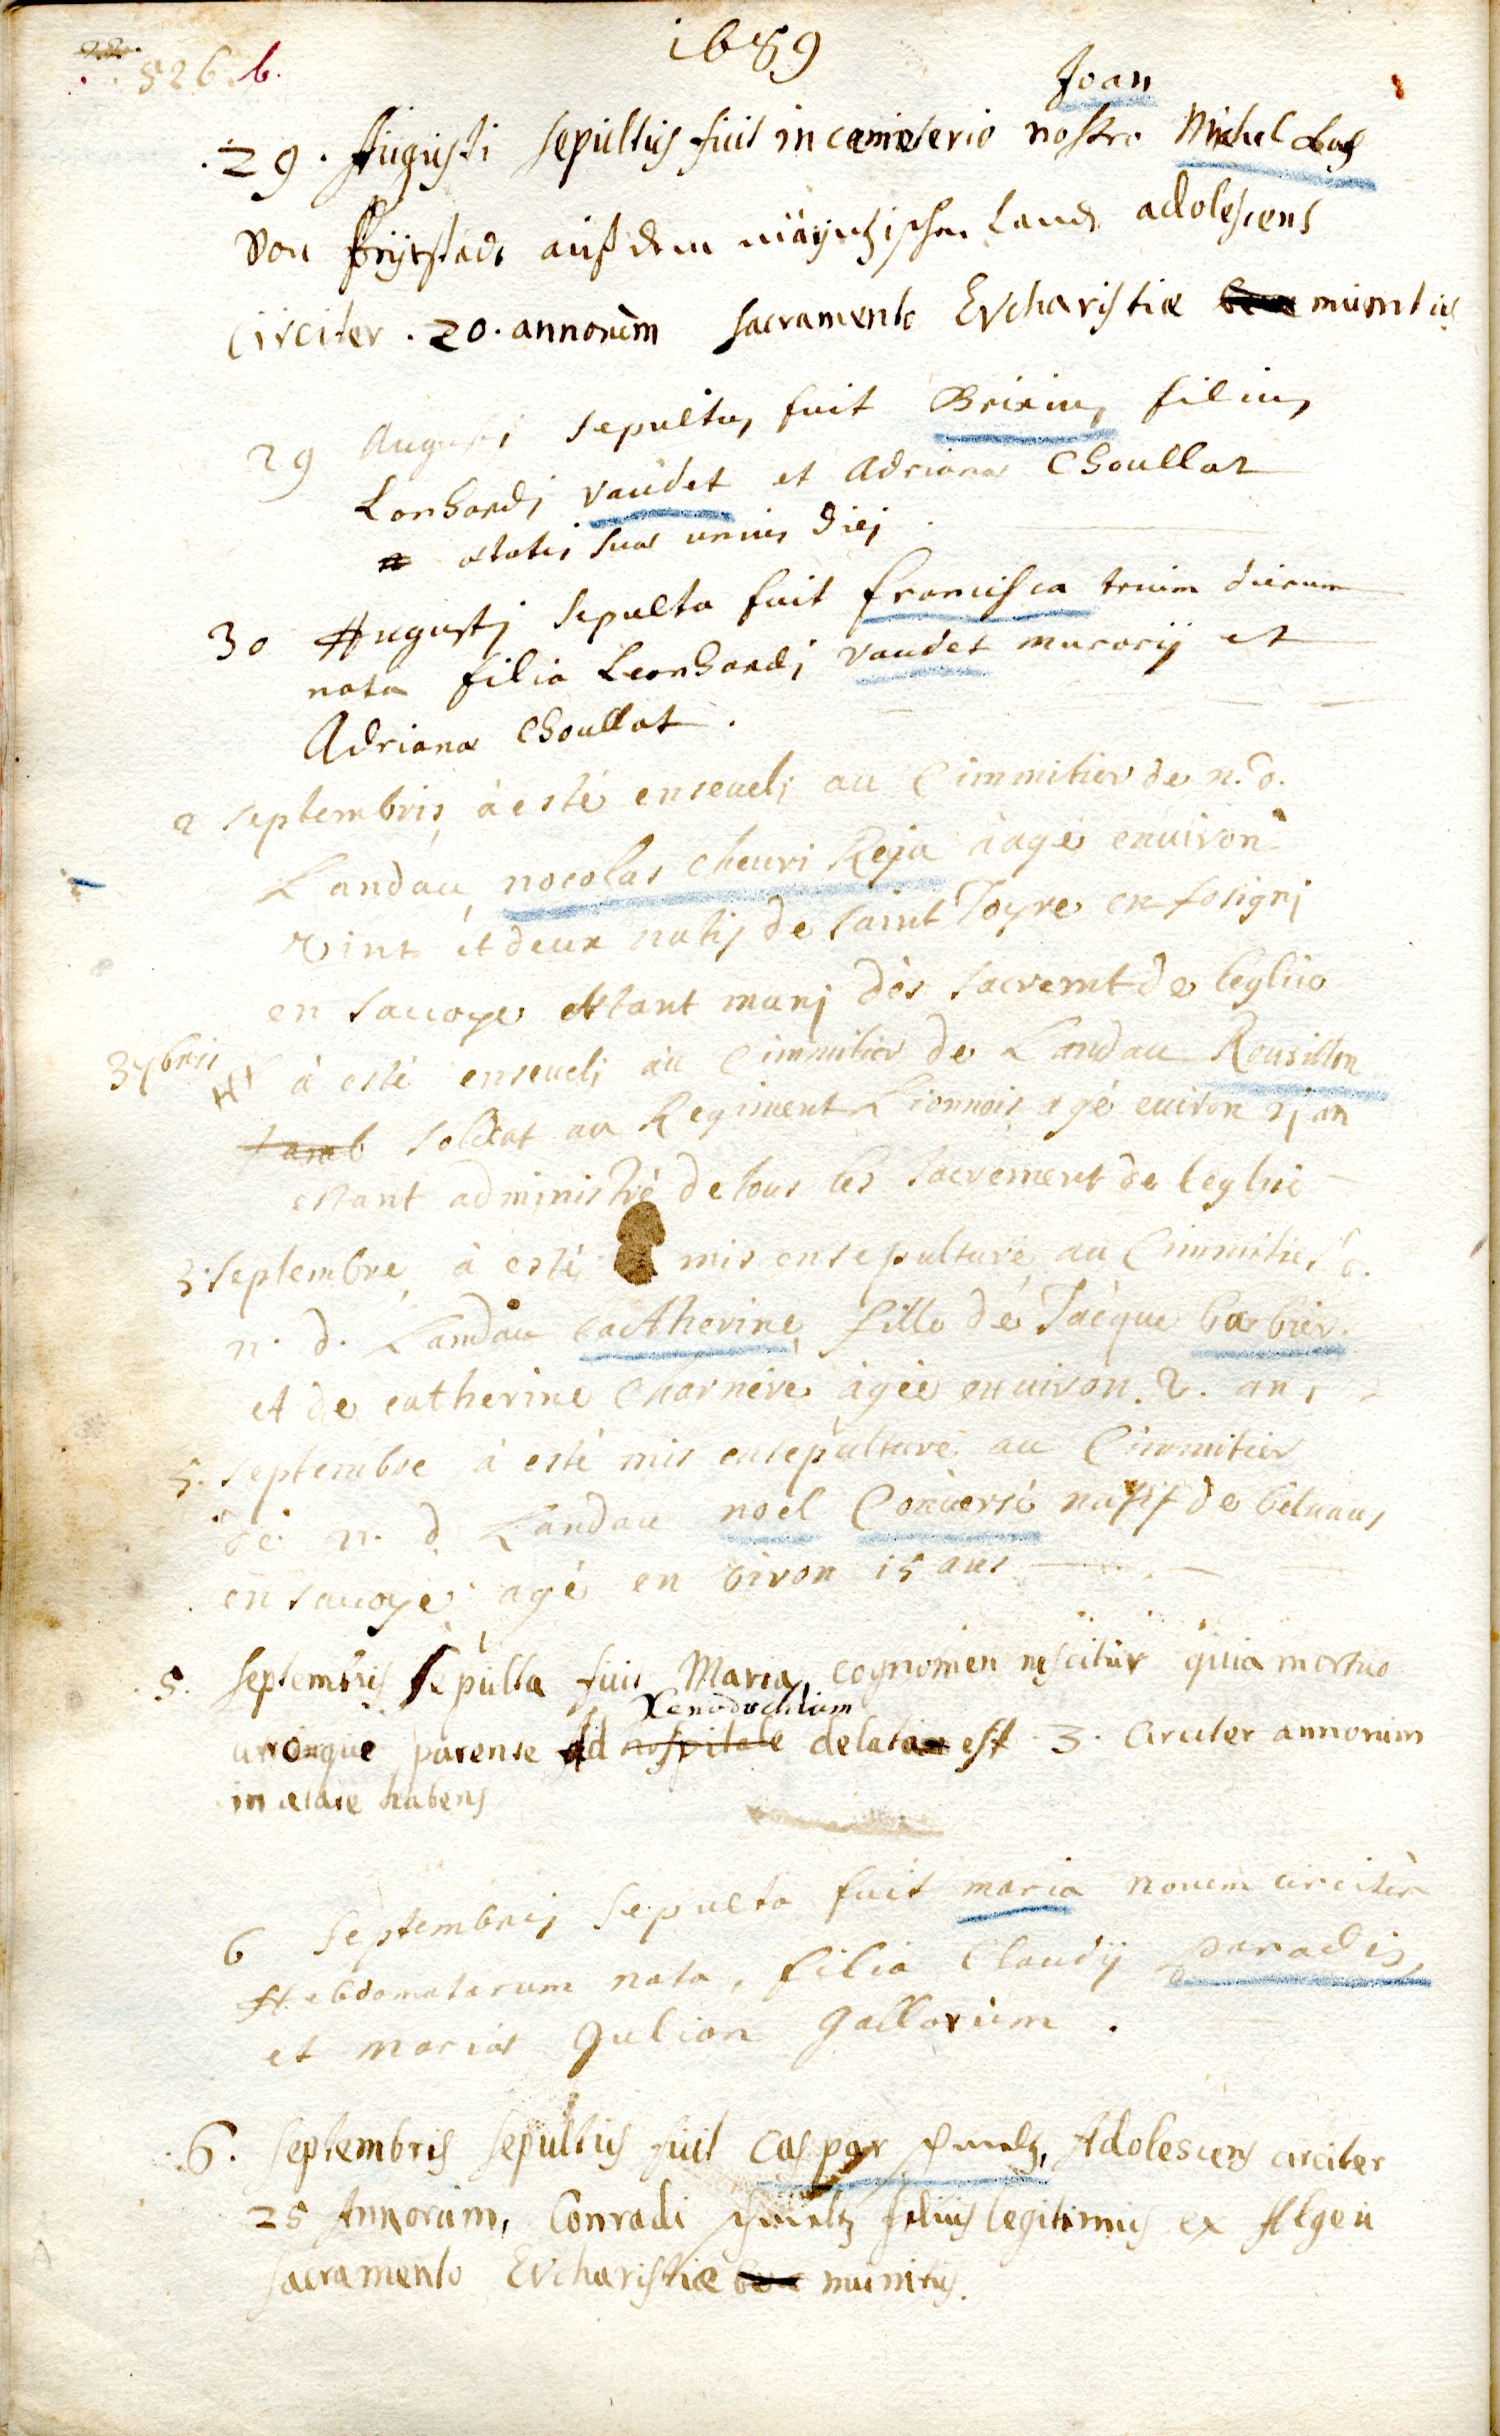 1689
526 b.
Joan
.29. Augusti sepultus fuit in cæmeterio nostro Michel
von auß dem Landt adolescens
circiter .20. annorum sacramento Eucharistiæ munitus
29 Augusti sepultus fuit Brixius filius
Lonhardj vaudet et Adrianæ Choullat
ætatis suæ unius diej.
30 Augustj sepulta fuit francisca trium dierum
nata filia Leonhardj vaudet murarij et
Adrianæ Choullat.
2 septembris à esté enseueli au Cimmitier de n. d.
Landau nocolas cheuri Reja àagé enuiron
vint et deux natif de saint Joyre en fosignj
en sauoye estant munj dès sacremt de leglise
3 7bris à esté enseueli au Cimmitier de Landau Rousillon
soldat au Regiment Lionnois agé enuiron an
estant administré de tous les sacrement de leglise
3. septembre à esté mis ensepulture au Cimmitier d.
n. d. Landau Cactherine fille dé Jacque barbier.
et de catherine Charnere àgée enuiron .2. ans
5. septembre à esté mis ensepulture au Cimmitier
de n. d. Landau noel Conuersé natif de beluaus
en sauoye agé en viron 15 ans
5. septembris sepulta fuit Maria, cognomen nescitur quia mortuo
Xenodochium
utroque parente ad hospitale delata est 3. circiter annorum
in ætate habens
6 septembris sepulta fuit maria nouem circiter
Hebdomatarum nata, filia Claudij paradis
et mariæ Julian Gallorum.
6. septembris sepultus fuit caspar schmeltz, Adolescens circiter
25 Annorum, Conradi schmeltz filius legitimus ex Algeu
sacramento Eucharistiæ munitus.